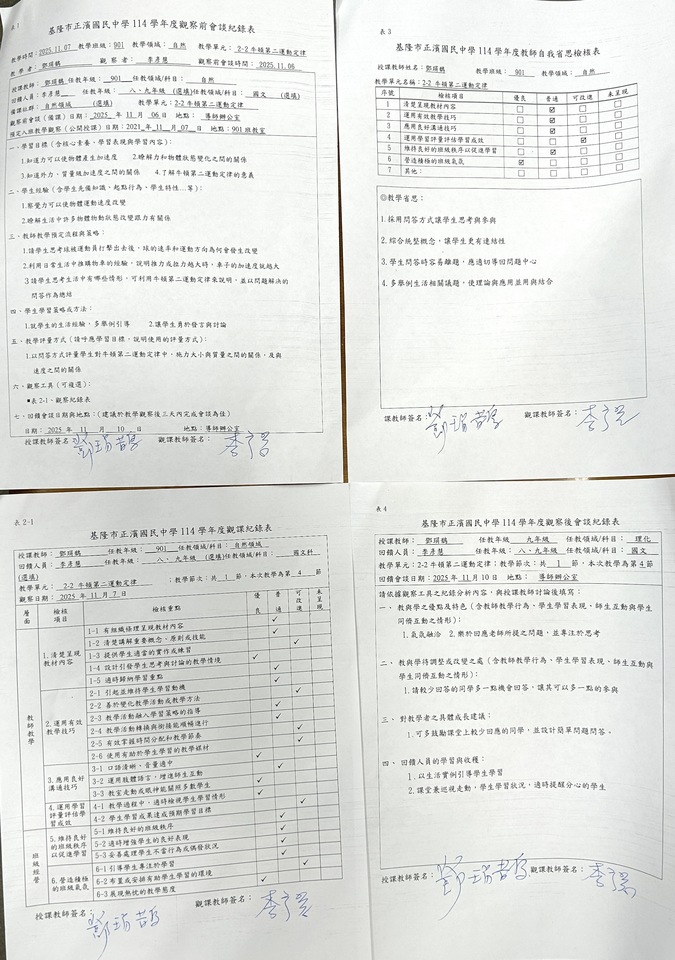 表 1
基隆市正濱國民中學 114 學年度觀察前會談紀錄表
教學時間:2025.11.07 教學班級:901 教學領域: 自然 教學單元: 2-2 牛頓第二運動定律
教 學 者: 鄧瑞鶴 觀 察 者: 李彥慧 觀察前會談時間:2025.11.06
授課教師: 鄧瑞鶴 任教年級: 901 任教領域/科目: 自然
回饋人員: 李彥慧 任教年級: 八、九年級 (選填)任教領域/科目: 國文 (選填)
備課社群: 自然領域 (選填) 教學單元: 2-2 牛頓第二運動定律
觀察前會談(備課)日期: 2025 年 11 月 06 日 地點: 導師辦公室
預定入班教學觀察(公開授課)日期: 2021年 11 月 07 日 地點: 901 班教室
一、學習目標(含核心素養、學習表現與學習內容):
1.知道力可以使物體產生加速度 2.瞭解力和物體狀態變化之間的關係
3.知道外力、質量級加速度之間的關係 4.了解牛頓第二運動定律的意義
二、學生經驗(含學生先備知識、起點行為、學生特性…等):
1.察覺力可以使物體運動速度改變
2.瞭解生活中許多物體物動狀態改變跟力有關係
三、教師教學預定流程與策略:
1.請學生思考球被運動員打擊出去後,球的速率和運動方向為何會發生改變
2.利用日常生活中推購物車的經驗,說明推力或拉力越大時,車子的加速度就越大
3.請學生思考生活中有哪些情形,可利用牛頓第二運動定律來說明,並以問題解決的
問答作為總結
四、學生學習策略或方法:
1.就學生的生活經驗,多舉例引導 2.讓學生勇於發言與討論
五、教學評量方式(請呼應學習目標,說明使用的評量方式):
1.以問答方式評量學生對牛頓第二運動定律中,施力大小與質量之間的關係,及與
速度之間的關係
六、觀察工具(可複選):
■表 2-1、觀察紀錄表:
七、回饋會談日期與地點:(建議於教學觀察後三天內完成會談為佳)
日期: 2025 年 11 月 10 日 地點: 導師辦公室
授課教師簽名: 鄧瑞鶴 觀課教師簽名: 李彥慧
表 3
基隆市正濱國民中學 114 學年度教師自我省思檢核表
授課教師姓名: 鄧瑞鶴 教學班級: 901 教學領域: 自然
教學單元名稱:2-2 牛頓第二運動定律
序號 檢核項目 優良 普通 可改進 未呈現
1 清楚呈現教材內容 □ ☑ □ □
2 運用有效教學技巧 □ ☑ □ □
3 應用良好溝通技巧 □ ☑ □ □
4 運用學習評量評估學習成效 □ □ ☑ □
5 維持良好的班級秩序以促進學習 □ ☑ □ □
6 營造積極的班級氣氛 ☑ □ □ □
7 其他: □ □ □ □
◎教學省思:
1.採用問答方式讓學生思考與參與
2.綜合統整概念,讓學生更有連結性
3.學生問答時容易離題,應適切導回問題中心
4.多舉例生活相關議題,使理論與應用並用與結合
課教師簽名: 鄧瑞鶴 觀課教師簽名: 李彥慧
表 2-1
基隆市正濱國民中學 114 學年度觀課紀錄表
授課教師: 鄧瑞鶴 任教年級: 901 任教領域/科目: 自然領域
回饋人員: 李彥慧 任教年級: 八、九年級 任教領域/科目: 國文科
(選填)
教學單元: 2-2 牛頓第二運動定律 ;教學節次:共 1 節,本次教學為第 4 節
觀察日期: 2025 年 11 月 7 日
層面 檢核項目 檢核重點 優良 普通 可改進 未呈現
教師教學
1.清楚呈現教材內容
1-1 有組織條理呈現教材內容 ✓
1-2 清楚講解重要概念、原則或技能 ✓
1-3 提供學生適當的實作或練習 ✓
1-4 設計引發學生思考與討論的教學情境 ✓
1-5 適時歸納學習重點 ✓
2.運用有效教學技巧
2-1 引起並維持學生學習動機 ✓
2-2 善於變化教學活動或教學方法 ✓
2-3 教學活動融入學習策略的指導 ✓
2-4 教學活動轉換與銜接能順暢進行 ✓
2-5 有效掌握時間分配和教學節奏 ✓
2-6 使用有助於學生學習的教學媒材 ✓
3.應用良好溝通技巧
3-1 口語清晰、音量適中 ✓
3-2 運用肢體語言,增進師生互動 ✓
3-3 教室走動或眼神能關照多數學生 ✓
4.運用學習評量評估學習成效
4-1 教學過程中,適時檢視學生學習情形 ✓
4-2 學生學習成果達成預期學習目標 ✓
班級經營
5.維持良好的班級秩序以促進學習
5-1 維持良好的班級秩序 ✓
5-2 適時增強學生的良好表現 ✓
5-3 妥善處理學生不當行為或偶發狀況 ✓
6.營造積極的班級氣氛
6-1 引導學生專注於學習 ✓
6-2 布置或安排有助學生學習的環境 ✓
6-3 展現熱忱的教學態度 ✓
授課教師簽名: 鄧瑞鶴 觀課教師簽名: 李彥慧
表 4
基隆市正濱國民中學 114 學年度觀察後會談紀錄表
授課教師: 鄧瑞鶴 任教年級 九年級 任教領域/科目: 理化
回饋人員: 李彥慧 任教年級: 八、九年級 任教領域/科目: 國文
教學單元:2-2 牛頓第二運動定律 ;教學節次:共 1 節,本次教學為第 4 節
回饋會談日期:2025 年 11 月 10 日 地點: 導師辦公室
請依據觀察工具之紀錄分析內容,與授課教師討論後填寫:
一、 教與學之優點及特色(含教師教學行為、學生學習表現、師生互動與學生
同儕互動之情形):
1.氣氛融洽 2.樂於回應老師所提之問題,並專注於思考
二、 教與學待調整或改變之處(含教師教學行為、學生學習表現、師生互動與
學生同儕互動之情形):
1.請較少回答的同學多一點機會回答,讓其可以多一點的參與
三、 對教學者之具體成長建議:
1.可多鼓勵課堂上較少回應的同學,並設計簡單問題問答。
四、 回饋人員的學習與收穫:
1.以生活實例引導學生學習
2.課堂兼巡視走動,學生學習狀況,適時提醒分心的學生
授課教師簽名: 鄧瑞鶴 觀課教師簽名: 李彥慧